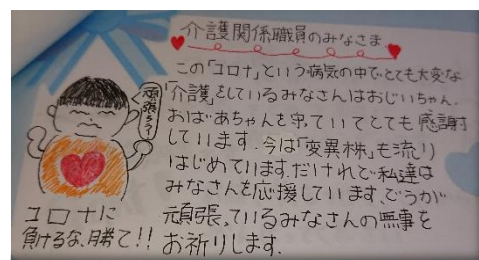 介護関係職員のみなさま
この「コロナ」という病気の中で、とても大変な
「介護」をしているみなさんはおじいちゃん、
おばあちゃんを守っていてとても感謝
しています。今は「変異株」も流行り
はじめています。だけれど私達は
みなさんを応援しています。どうか
頑張っているみなさんの無事を
お祈りします。
頑張ろう!
コロナに
負けるな、勝て!!